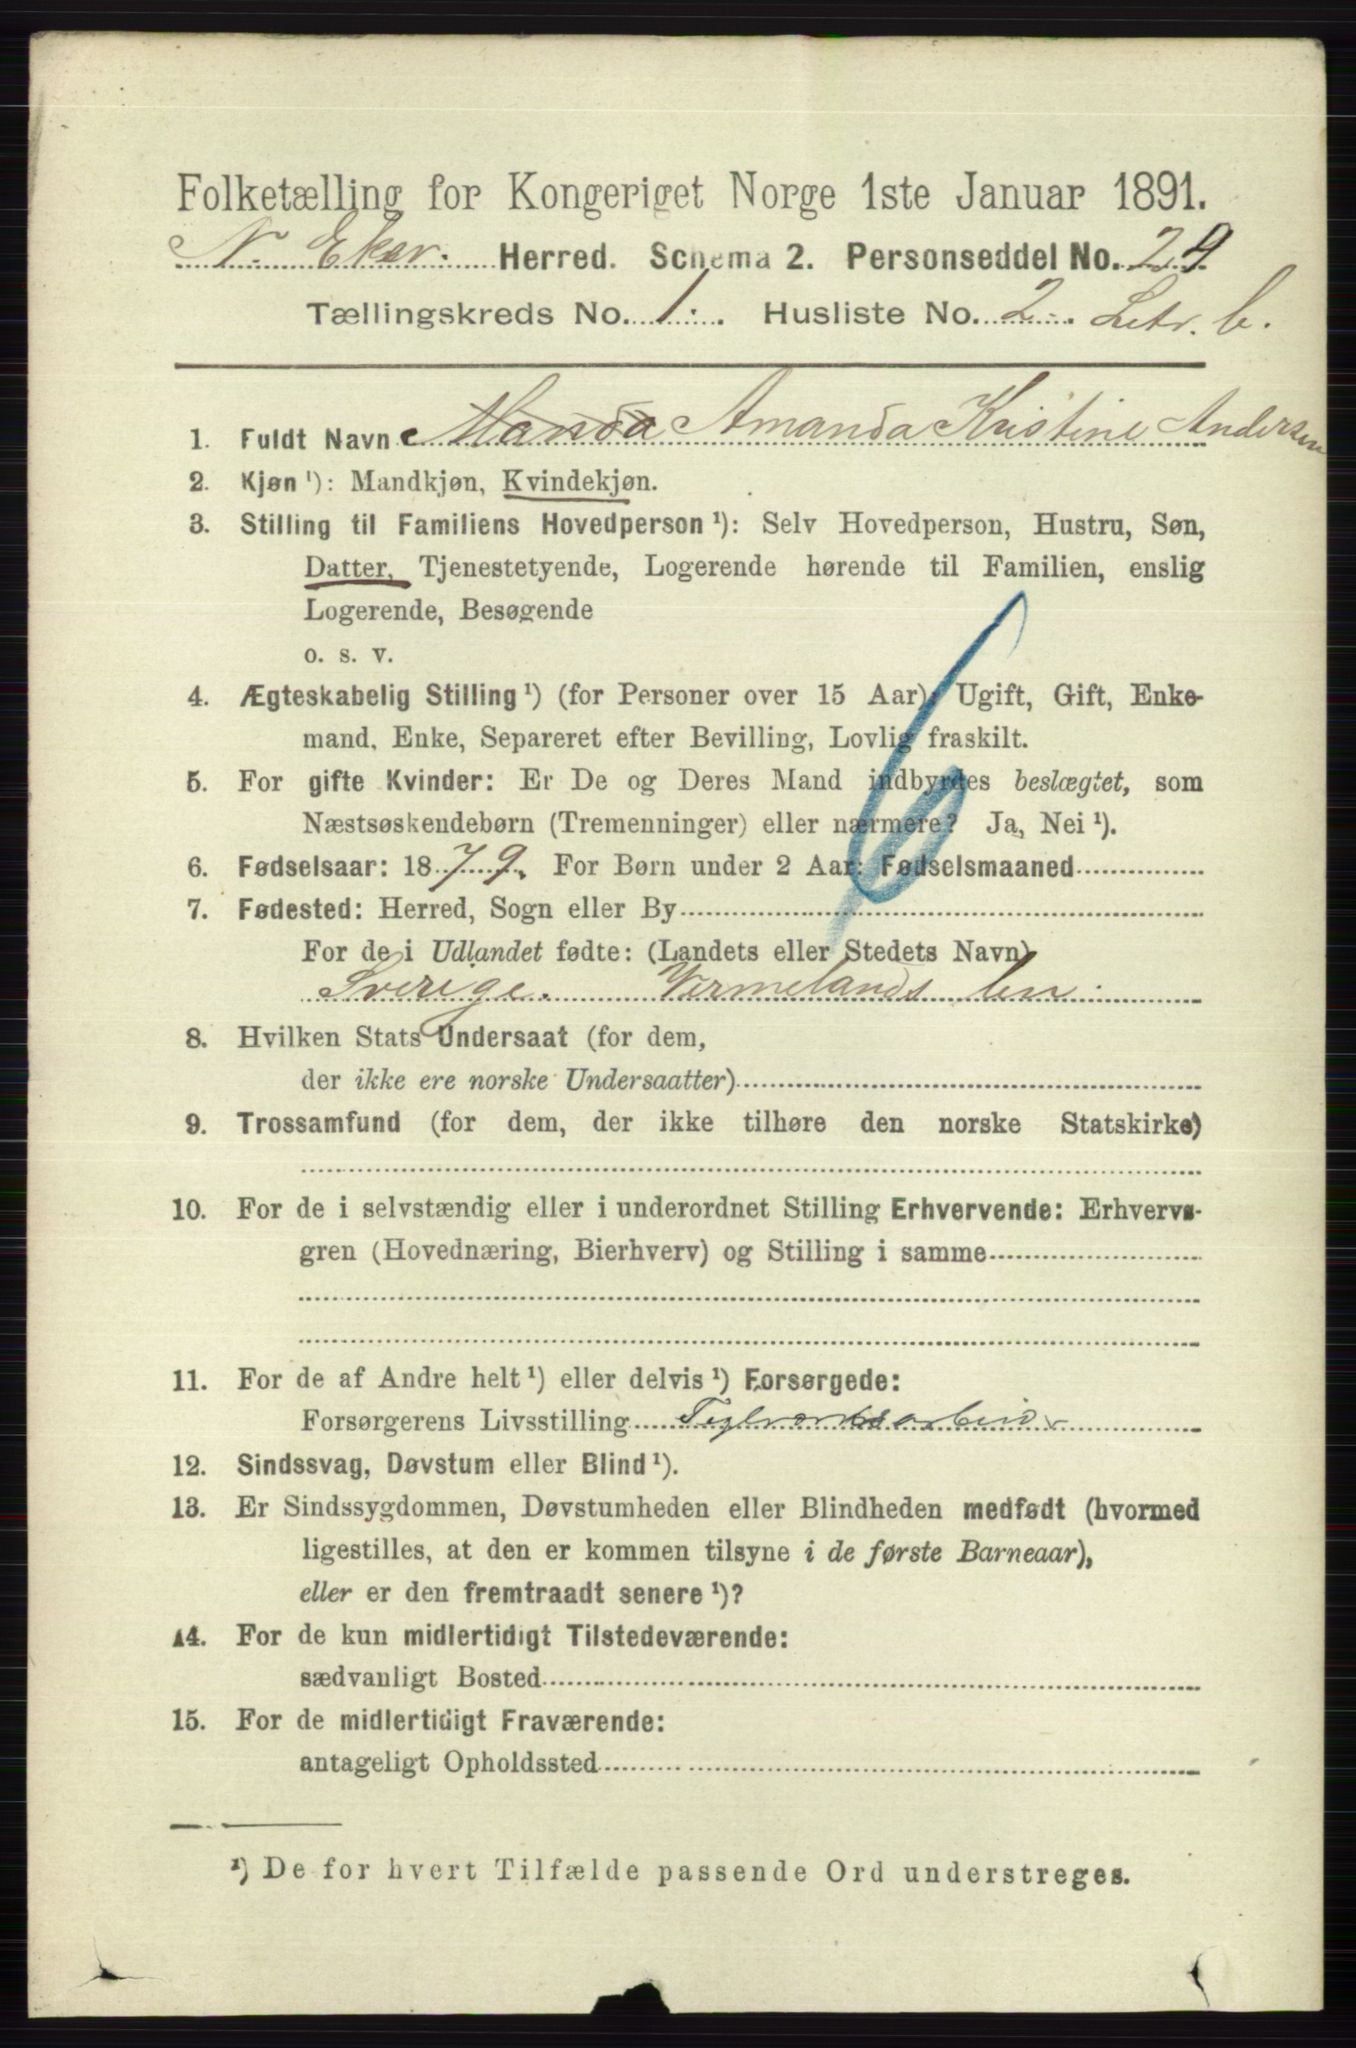 Folketælling for Kongeriget Norge 1ste Januar 1891.
N. Eker. Herred. Schema 2. Personseddel No. 29
Tællingskreds No. 1. Husliste No. 2. Letr. b.
1. Fuldt Navn Manda Amanda Kristine Andersen
2. Kjøn ¹): Mandkjøn, Kvindekjøn.
3. Stilling til Familiens Hovedperson ¹): Selv Hovedperson, Hustru, Søn,
Datter, Tjenestetyende, Logerende hørende til Familien, enslig
Logerende, Besøgende
o. s. v.
4. Ægteskabelig Stilling ¹) (for Personer over 15 Aar): Ugift, Gift, Enke-
mand, Enke, Separeret efter Bevilling, Lovlig fraskilt.
5. For gifte Kvinder: Er De og Deres Mand indbyrdes beslægtet, som
Næstsøskendebørn (Tremenninger) eller nærmere? Ja, Nei ¹).
6. Fødselsaar: 1879. For Børn under 2 Aar: Fødselsmaaned
7. Fødested: Herred, Sogn eller By
For de i Udlandet fødte: (Landets eller Stedets Navn)
Sverige. Vermelands len
8. Hvilken Stats Undersaat (for dem,
der ikke ere norske Undersaatter)
9. Trossamfund (for dem, der ikke tilhøre den norske Statskirke)
10. For de i selvstændig eller i underordnet Stilling Erhvervende: Erhvervs-
gren (Hovednæring, Bierhverv) og Stilling i samme
11. For de af Andre helt ¹) eller delvis ¹) Forsørgede:
Forsørgerens Livsstilling Teglverksarbeider
12. Sindssvag, Døvstum eller Blind ¹).
13. Er Sindssygdommen, Døvstumheden eller Blindheden medfødt (hvormed
ligestilles, at den er kommen tilsyne i de første Barneaar),
eller er den fremtraadt senere ¹)?
14. For de kun midlertidigt Tilstedeværende:
sædvanligt Bosted
15. For de midlertidigt Fraværende:
antageligt Opholdssted
¹) De for hvert Tilfælde passende Ord understreges.